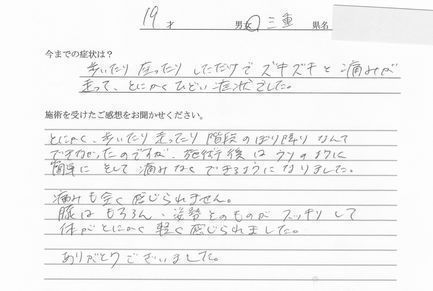 19才 男女 三重県名
今までの症状は？
歩いたり座ったりしただけでズキズキと痛みが
走って、とにかくひどい症状でした。
施術を受けたご感想をお聞かせください。
とにかく、歩いたり走ったり階段のぼり降りなんて
できなかったのですが、施術後はウソのように
簡単にそして痛みなくできるようになりました。
痛みも全く感じられません。
腰はもちろん、姿勢そのものがスッキリして
体がとにかく軽く感じられました。
ありがとうございました。